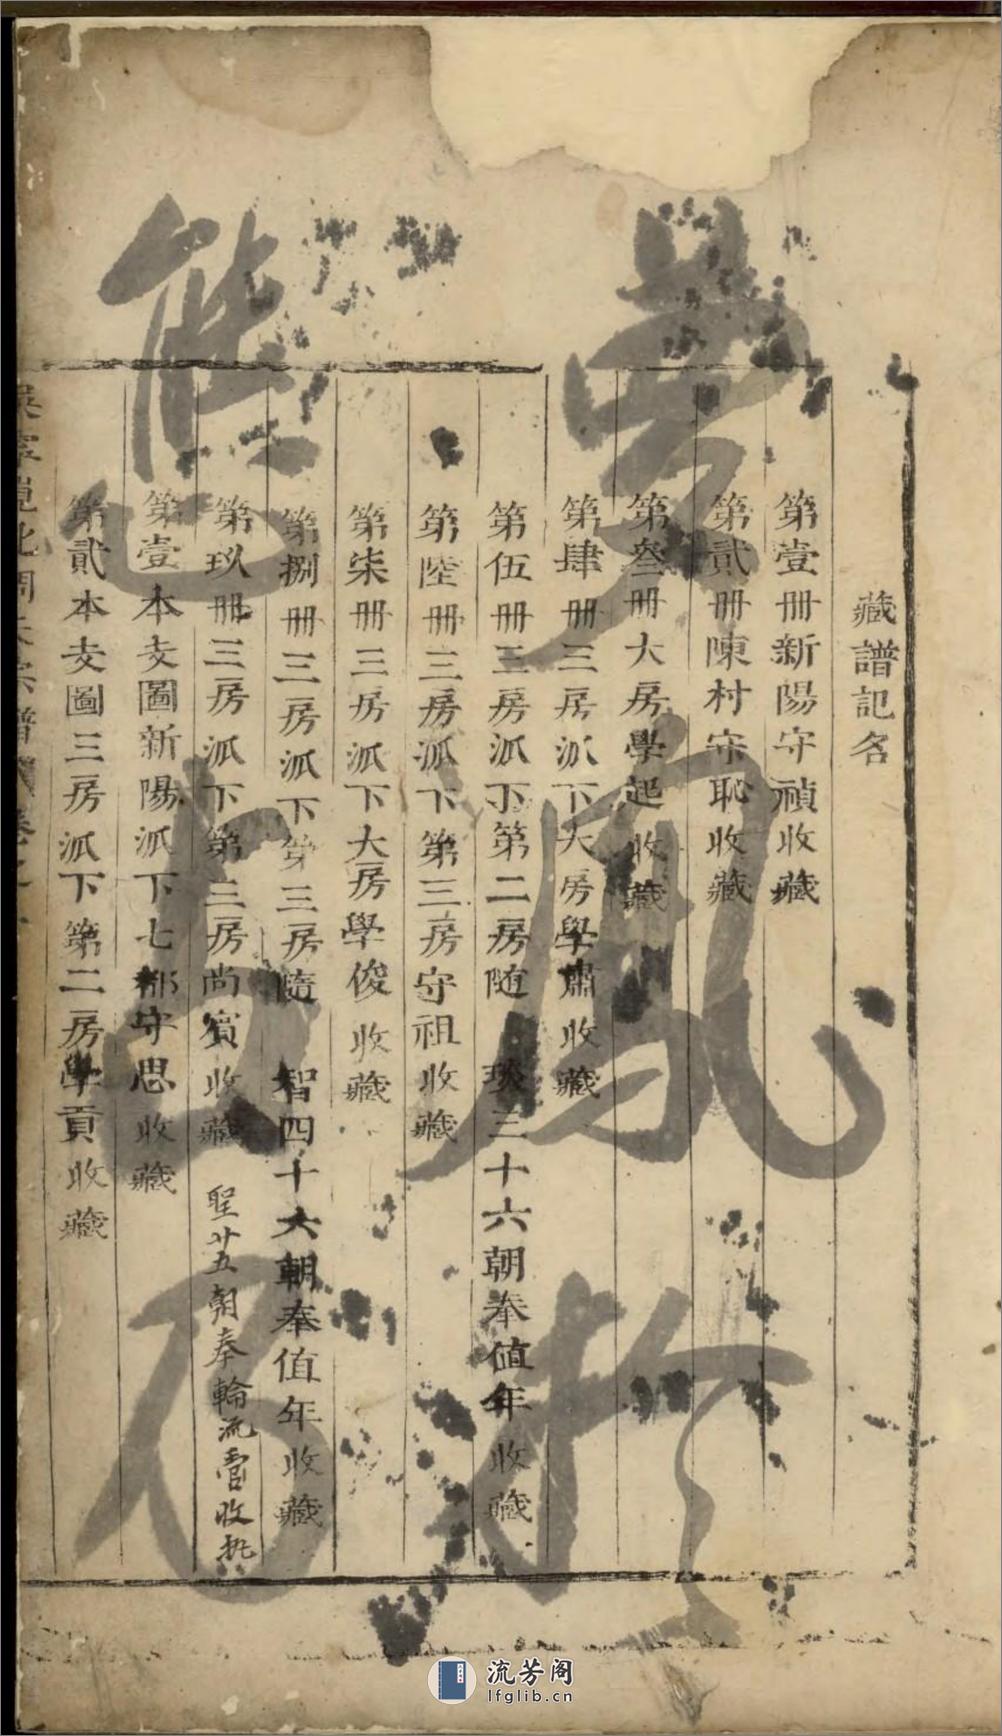 藏譜記名
第壹冊新陽守禎收藏
第貳冊陳村守恥收藏
第叁冊大房學起收藏
第肆冊三房派下大房學肅收藏
第伍冊三房派下第二房隨 琰三十六朝奉值年收藏
第陸冊三房派下第三房守祖收藏
第柒冊三房派下大房學俊收藏
第捌冊三房派下第三房隨 智四十六朝奉值年收藏
第玖冊三房派下第三房尚賓收藏 聖廿五朝奉輪流管收執
第壹本支圖新陽派下七都守思收藏
第貳本支圖三房派下第二房學貢收藏
流芳阁
lfglib.cn